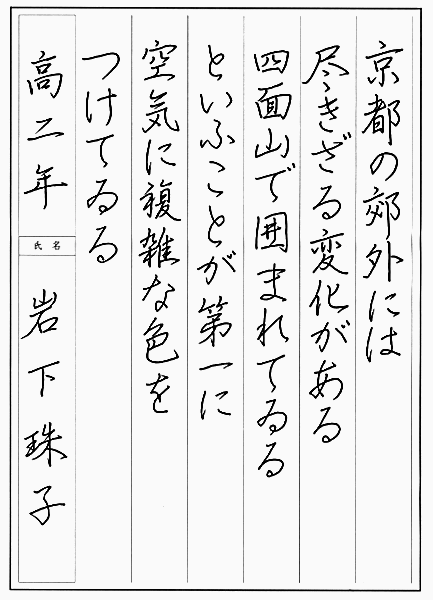 京都の郊外には
尽きざる変化がある
四面山で囲まれてゐる
といふことが第一に
空気に複雑な色を
つけてゐる
高二年
氏名
岩下珠子